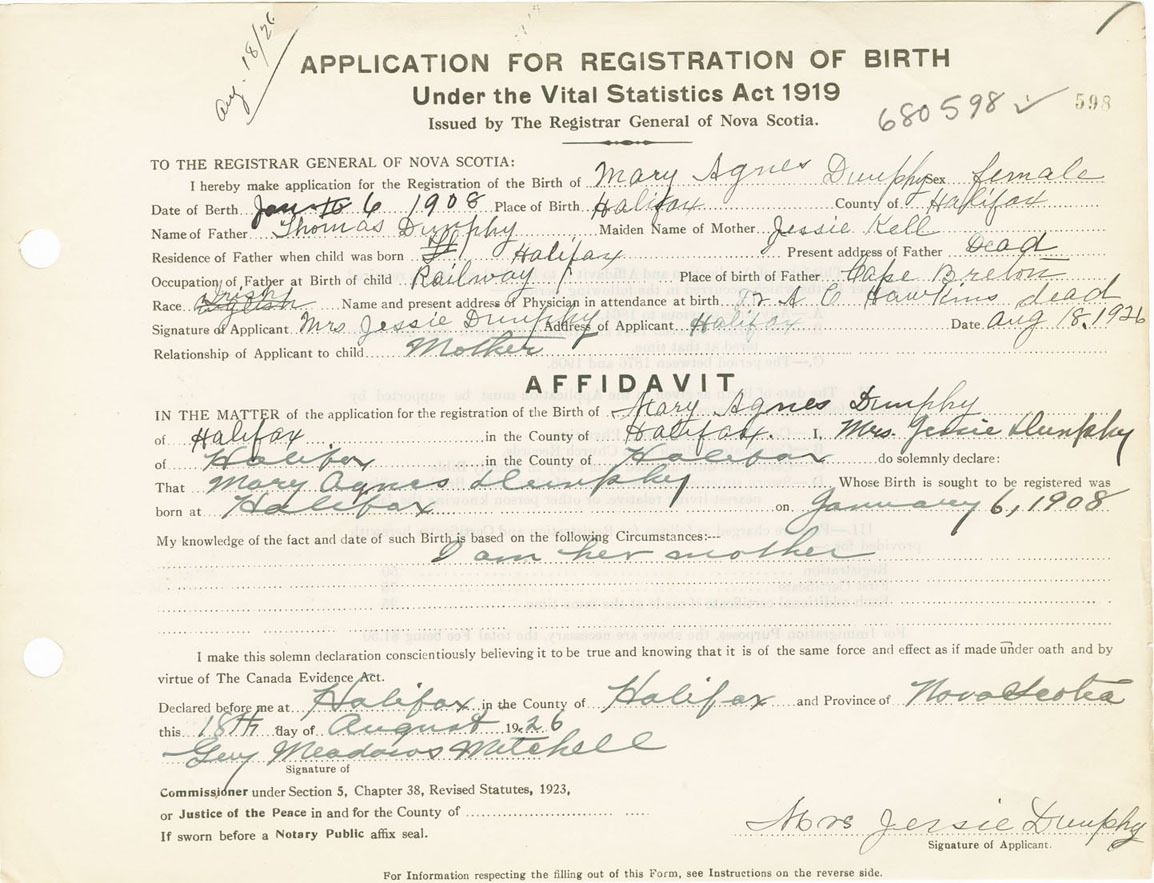 Aug. 18/26
APPLICATION FOR REGISTRATION OF BIRTH
Under the Vital Statistics Act 1919
Issued by The Registrar General of Nova Scotia.
680598 ✓ 598
TO THE REGISTRAR GENERAL OF NOVA SCOTIA:
I hereby make application for the Registration of the Birth of Mary Agnes Dumphy sex female
Date of Berth Jan 6 1908 Place of Birth Halifax County of Halifax
Name of Father Thomas Dumphy Maiden Name of Mother Jessie Kell
Residence of Father when child was born Halifax Present address of Father Dead
Occupation of Father at Birth of child Railway Place of birth of Father Cape Breton
Race Irish English Name and present address of Physician in attendance at birth Dr A C Hawkins dead
Signature of Applicant Mrs Jessie Dumphy Address of Applicant Halifax Date Aug 18, 1926
Relationship of Applicant to child Mother
AFFIDAVIT
IN THE MATTER of the application for the registration of the Birth of Mary Agnes Dumphy
of Halifax in the County of Halifax. I, Mrs. Jessie Dumphy
of Halifax in the County of Halifax do solemnly declare:
That Mary Agnes Dumphy Whose Birth is sought to be registered was
born at Halifax on January 6, 1908
My knowledge of the fact and date of such Birth is based on the following Circumstances:--
I am her mother
I make this solemn declaration conscientiously believing it to be true and knowing that it is of the same force and effect as if made under oath and by
virtue of The Canada Evidence Act.
Declared before me at Halifax in the County of Halifax and Province of Nova Scotia
this 18th day of August 1926
Guy Meadows Mitchell
Signature of
Commissioner under Section 5, Chapter 38, Revised Statutes, 1923,
or Justice of the Peace in and for the County of
If sworn before a Notary Public affix seal.
Mrs Jessie Dumphy
Signature of Applicant.
For Information respecting the filling out of this Form, see Instructions on the reverse side.